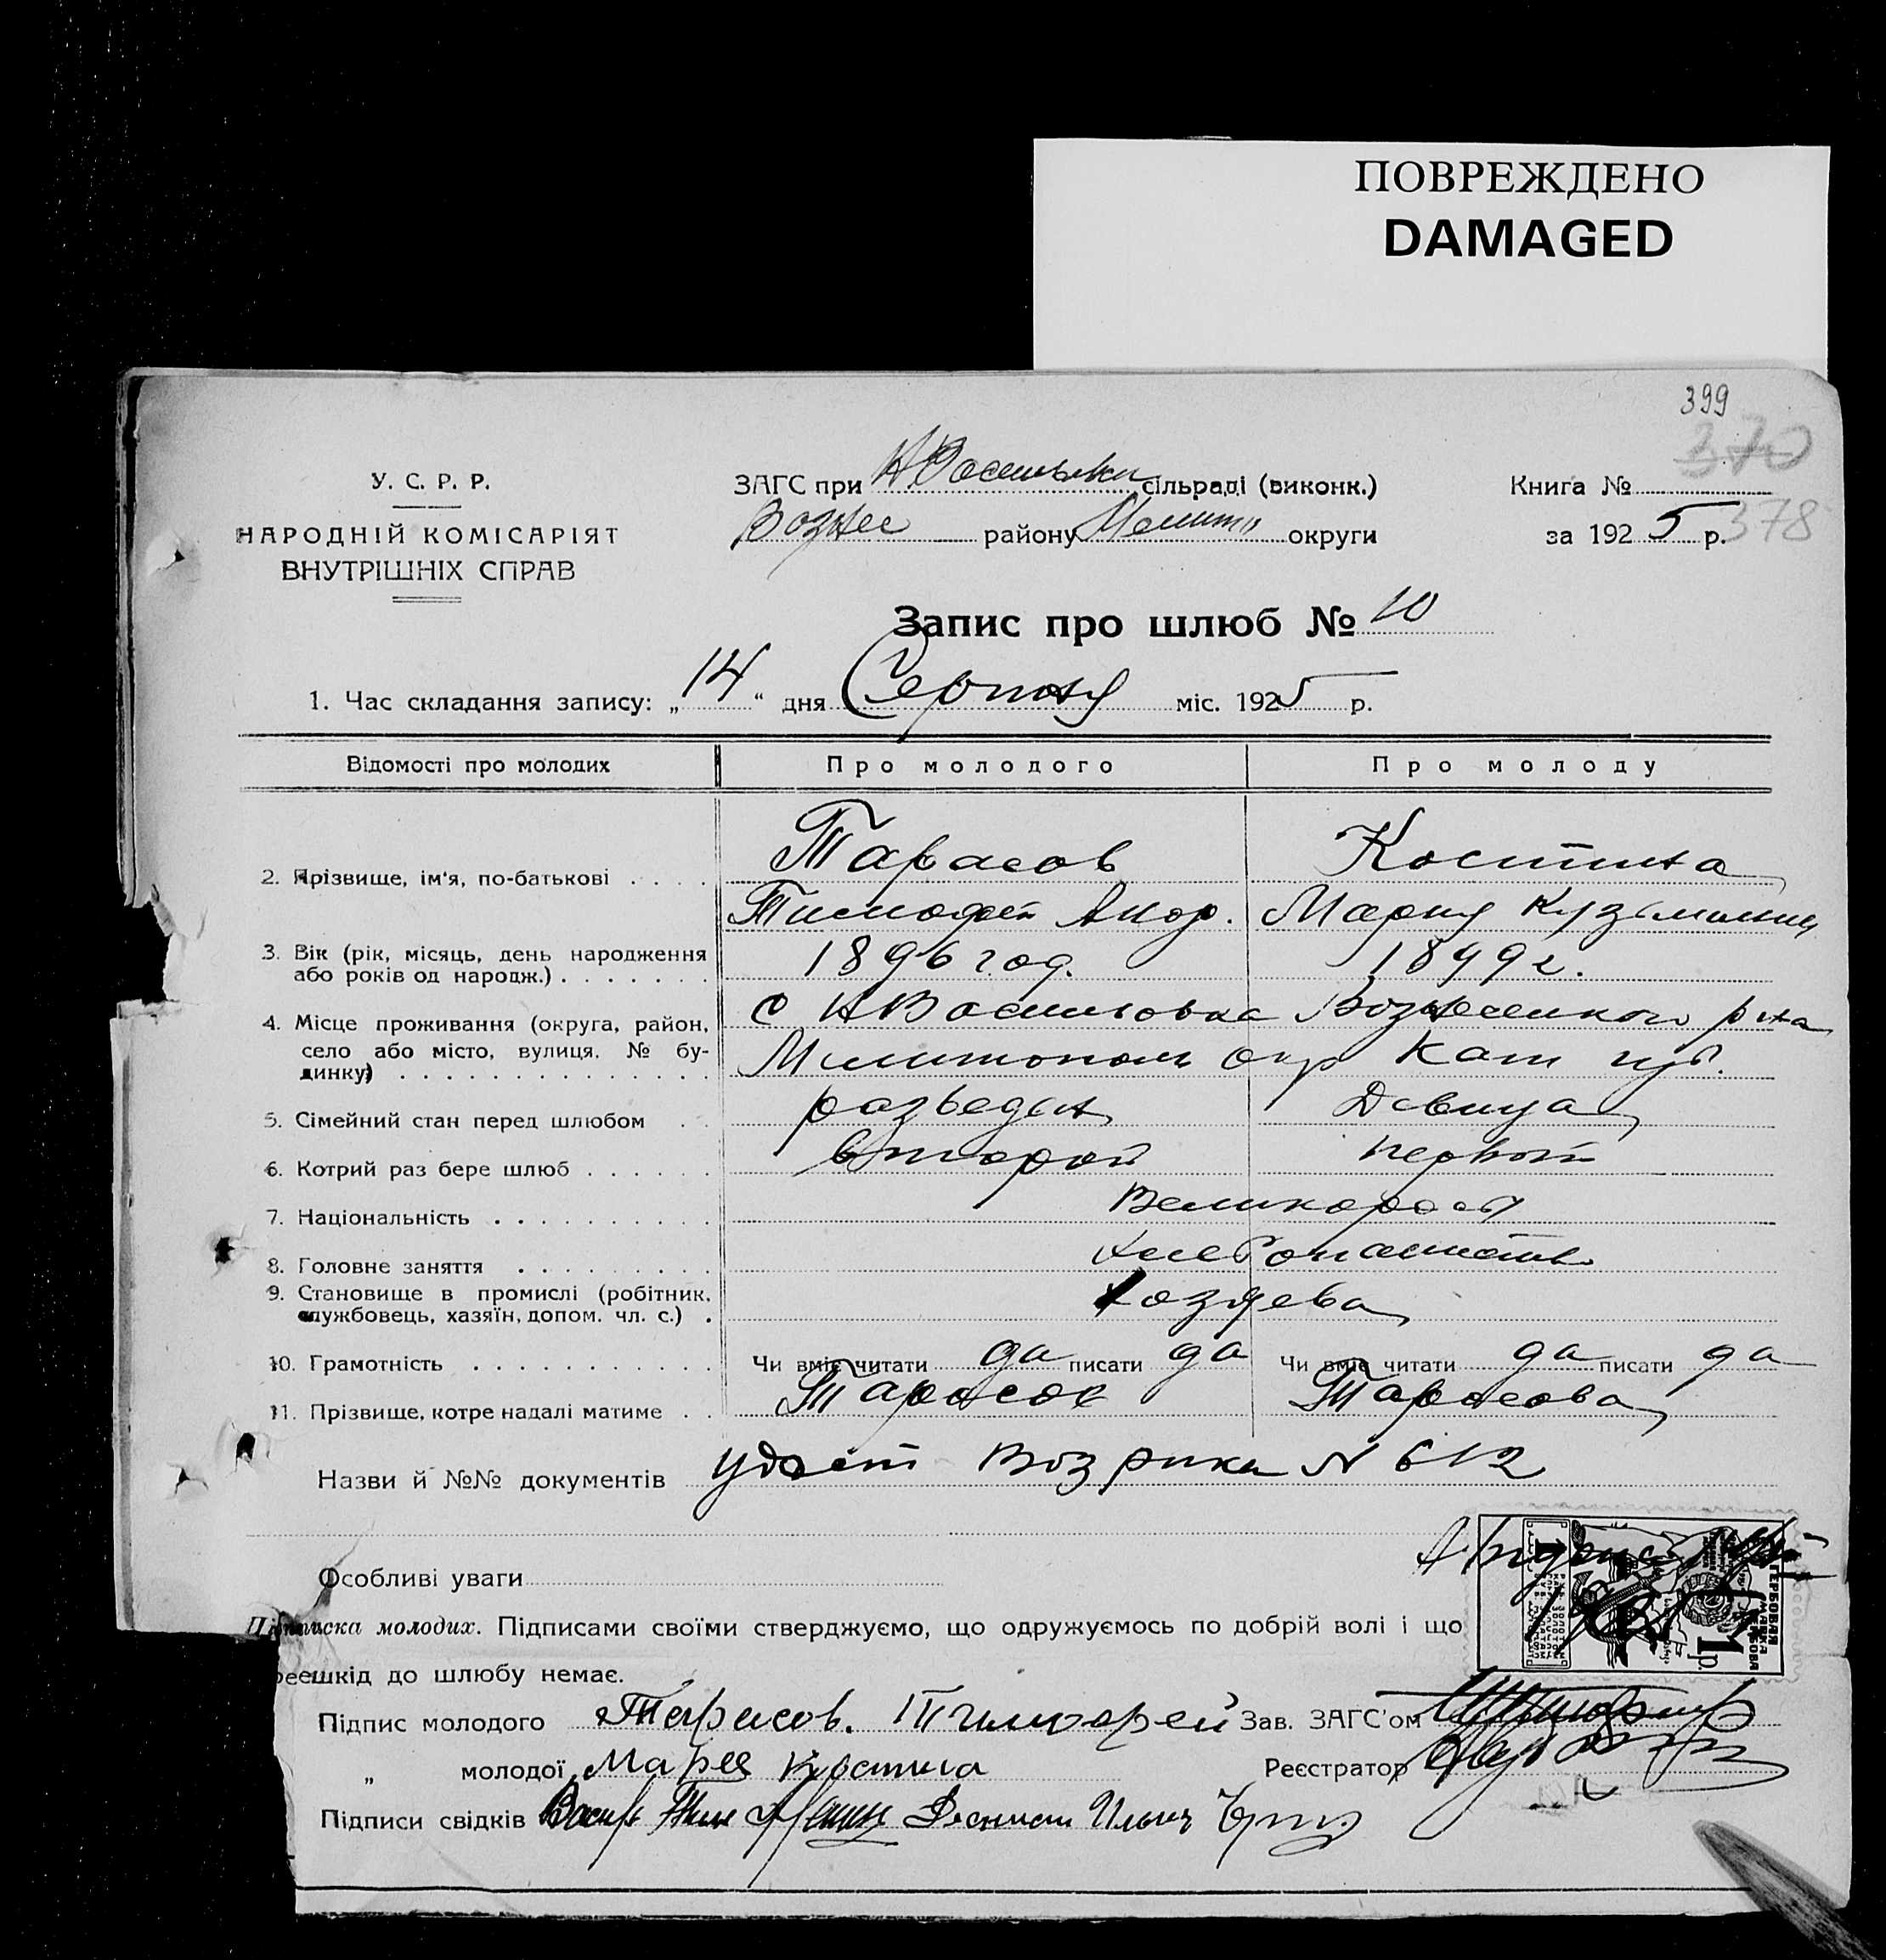 ПОВРЕЖДЕНО
DAMAGED
399
370
378
У. С. Р. Р.
НАРОДНІЙ КОМІСАРІЯТ
ВНУТРІШНІХ СПРАВ
ЗАГС при Н Васильевки сільраді (виконк.)
Вознес району Мелито округи
Книга №
за 1925 р.
Запис про шлюб № 10
1. Час складання запису: „14“ дня Серпня міс. 1925 р.
Відомості про молодих Про молодого Про молоду
2. Прізвище, ім'я, по-батькові Тарасов Костина
Тимофей Мария Кузьминич
3. Вік (рік, місяць, день народження 1896 год. 1899 г.
або років од народж.)
4. Місце проживання (округа, район, с Н Васильовка Вознесенкого р на
село або місто, вулиця, № бу-
динку) Мелитополь окр Кат губ.
5. Сімейний стан перед шлюбом разведен Девица
6. Котрий раз бере шлюб второй первой
7. Національність Великоросы
8. Головне заняття хлебопашество
9. Становище в промислі (робітник, службовець, хазяїн, допом. чл. с.) хозяева
10. Грамотність Чи вміє читати да писати да Чи вміє читати да писати да
11. Прізвище, котре надалі матиме Тарасов Тарасова
Назви й №№ документів удост Воз рика N 612
Особливі уваги
ГЕРБОВАЯ МАРКА
1 р.
Підписка молодих. Підписами своїми стверджуємо, що одружуємось по добрій волі і що
реешкід до шлюбу немає.
Підпис молодого Тарасов. Тимофей Зав. ЗАГС'ом
„ молодої Мария Костина Реєстратор
Підписи свідків